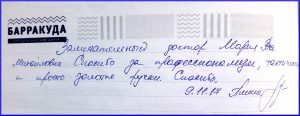 БАРРАКУДА
Замечательный доктор Мария Ва
Спасибо за профессионализм,
и просто золотые ручки. Спасибо.
9.11.17 Алина